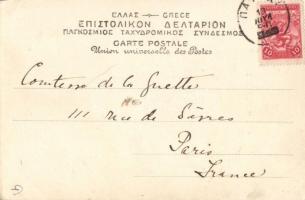 ΕΛΛΑΣ GRECE
ΕΠΙΣΤΟΛΙΚΟΝ ΔΕΛΤΑΡΙΟΝ
ΠΑΓΚΟΣΜΙΟΣ ΤΑΧΥΔΡΟΜΙΚΟΣ ΣΥΝΔΕΣΜΟΣ
CARTE POSTALE
Union universelle des Postes
Comtesse de la Guette
111 rue de Sèvres
Paris
France